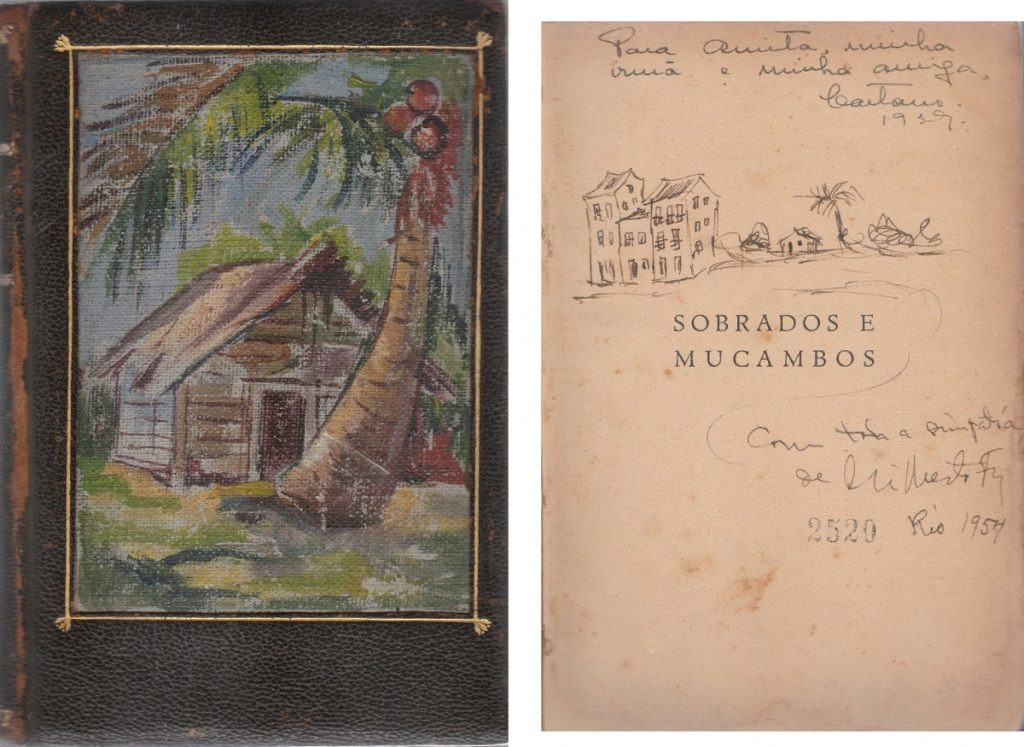 Para Anita, minha
irmã e minha amiga,
Caetano.
1937.
SOBRADOS E
MUCAMBOS
Com toda a simpatia
de Gilberto Fr
2520 Rio 1954